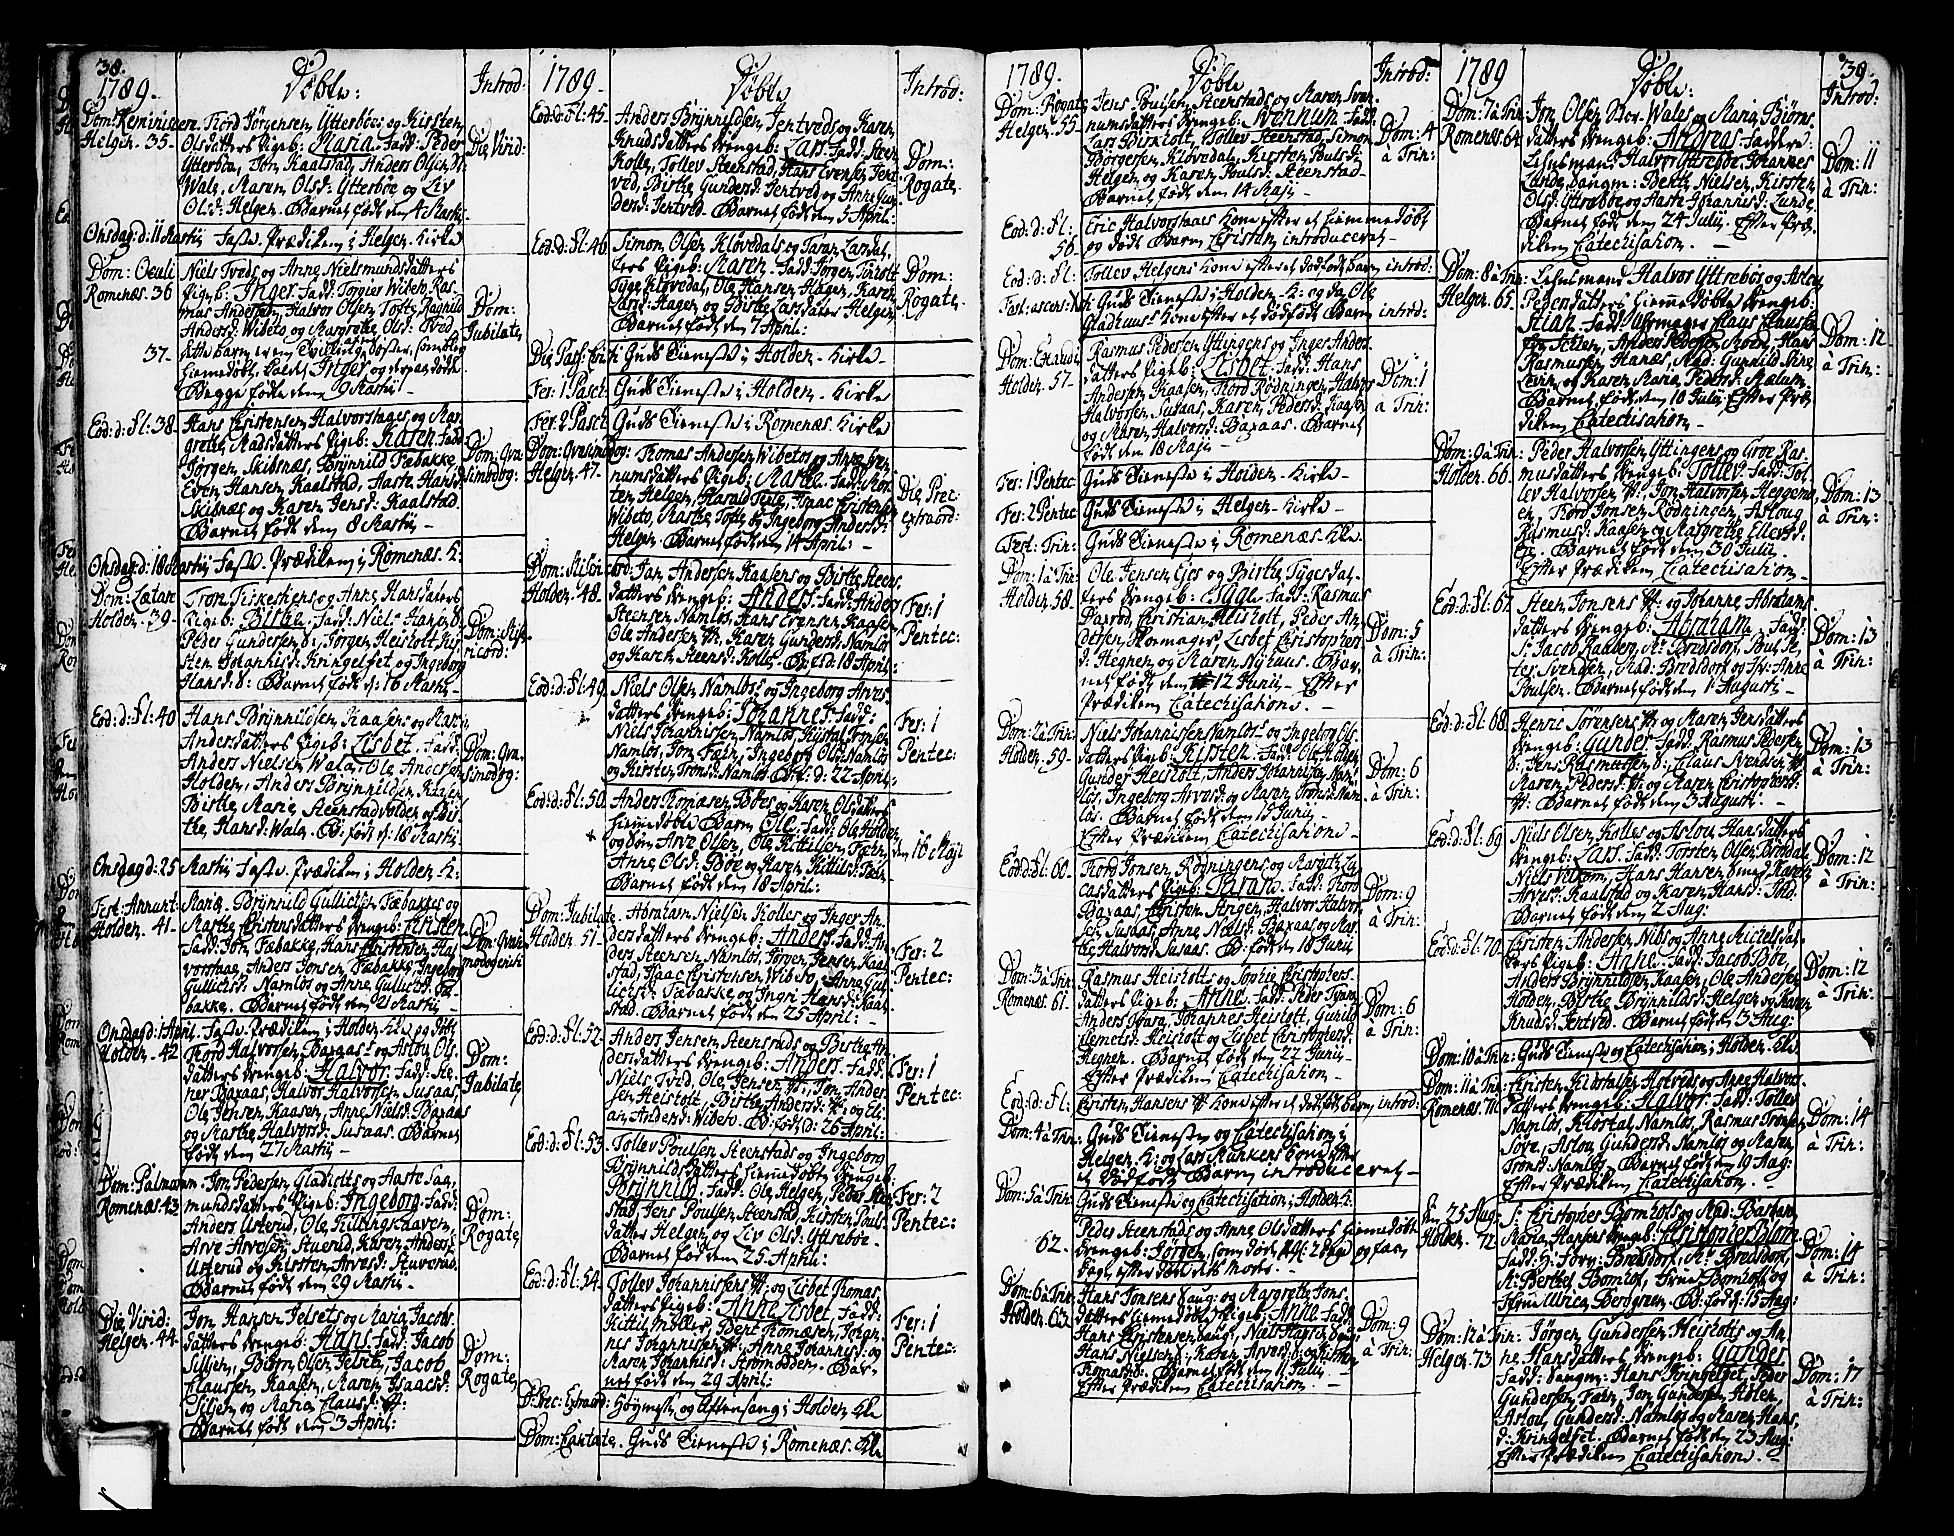 38.
1789.
Döbte:
Introd:
Dom: Reminiscere.
Helgen. 35.
Tord Jörgensen Ytterböes og Kirsten
Olsdatters Pigeb: Maria. Fadd: Peder
Ytterböe, Jon Kaalstad, Anders Olsen
Wala, Maren Olsd: Ytterböe og Liv
Olsd: Helgen. Barnet född den 4 Martij
Die Virid:
Onsdag: d: 11 Martij Faste Prædiken i Helgen Kirke
Dom: Oculi
Romenæs. 36
Niels Tveds og Anne Nielsmundsdatters
Pigeb: Inger. Fadd: Torgies Wibeto, Ras-
mus Andersen, Halvor Olsen Tofte, Ragnild
Andersd: Wibeto og Margrethe Olsd: Tved.
Dom:
Jubilate
37.
hiemedöbt, kaldet Inger og
Begge födte den 9 Martij
Eod: d: Fl: 38.
Hans Christensen Halvorshages og Mar-
grethe Madsdatters Pigeb: Karen. Fadd:
Jörgen Skibsnæs, Brynnild Fæbakke,
Even Hansen Kaalstad, Haste Hansd:
Skibsnæs og Karen Jensd: Kaalstad.
Barnet född den 8 Martij
Dom: Qva-
simodog:
Onsdag: d: 18 Martij Faste Prædiken i Romenæs K:
Dom: Lætare
Holden. 39.
og Anne Hansdatters
Pigeb: Birthe. Fadd: Niels Hansen
Peder Gundersen, Jörgen Heisholt, Kir-
sten Johannisd: Kringelfet og Ingeborg
Hansd: Barnet född d: 16 Martij
Dom: Mise-
ricord:
Eod: d: Fl: 40
Hans Brynnildsen Kaasens og Maria
Andersdatters Pigeb: Lisbet. Fadd:
Anders Nielsen Wala, Ole Andersen
Holden, Anders Brynnildsen Kaasen
Birthe Marie Steenstad Holden og Bir-
the Hansd: Wala. B: född d: 18 Martij
Dom: Qva-
simodog:
Onsdag d: 25 Martij Faste Prædiken i Holden K:
Fest: Annunt:
Holden. 41.
Mariæ. Brynnild Gullichsen Fæbakkes og
Marthe Christensdatters Drengeb: Christen
Fadd: Jon Fæbakke, Hans Christensen Hal-
vorshage, Anders Jonsen Fæbakke, Ingeborg
Gullichsd: Namlös og Anne Gullichsd: Fæ-
bakke. Barnet född den 21 Martij
Dom: Qvasi
modogeniti
Onsdag d: 1 April. Faste Prædiken i Holden Kke og döbt
Holden. 42.
Tord Halvorsen Baxaas's og Aslou Ols-
datters Drengeb: Halvor. Fadd:
ner Baxaas, Halvor Halvorsen Susaas,
Ole Jensen Kaasen, Anne Nielsd: Baxaas
og Marthe Halvorsd: Susaas. Barnet
född den 27 Martij
Dom:
Jubilate
Dom: Palmarum
Romenæs. 43
Jon Pedersen Gladholts og Aaste Saa-
mundsdatters Pigeb: Ingeborg. Fadd:
Anders Usterud, Ole Killingshaven,
Arve Arvesen Stuverud, Karen Andersd:
Usterud og Kirsten Arvesd: Stuverud.
Barnet född den 29 Martij
Dom:
Rogate
Die Virid:
Helgen. 44.
Jon Hansen Jelsets og Maria Jacobs-
datters Drengeb: Hans. Fadd: Jacob
Siljen, Biörn Olsen Jelset, Jacob
Clausen Kaasen, Maren Isaacsd:
Siljen og Maria Clausd:
Barnet född den 3 April:
Dom:
Rogate
1789.
Döbte
Introd:
Eod: d: Fl: 45.
Anders Brynnildsen Jentveds og Karen
Knudsdatters Drengeb: Lars. Fadd: Steen
Kolle, Tollev Steenstad, Hans Evensen Jent-
ved, Birthe Gundersd: Jentved og Anne Gun-
dersd: Jentved. Barnet född den 5 April:
Dom:
Rogate.
Eod: d: Fl: 46
Simon Olsen Klövedals og Taran Larsdat-
ters Pigeb: Maren. Fadd: Jörgen
Tyge Klövedal, Ole Hansen Hagen, Karen
Larsd: Hagen og Birthe Larsdatter Helgen
Barnet född den 7 April:
Dom:
Rogate.
Die Pasch:
Guds Tieneste i Holden Kirke
Fer: 1 Pasch: Guds Tieneste i Holden Kirke
Fer: 2 Pasch: Guds Tieneste i Romenæs Kirke
Dom: Qvasimodog:
Helgen. 47.
Thomas Andersen Wibetos og Anne Iven-
numsdatters Pigeb: Marthe. Fadd: Mor-
ten Helgen, Harald Teite, Isaac Christensen
Wibeto, Marthe Tofte og Ingeborg Andersd:
Helgen. Barnet född den 14 April:
Die Prec:
Extraord:
Dom: Misericord:
Holden. 48.
Jan Andersen Kaasens og Birthe Steens-
datters Drengeb: Anders. Fadd: Anders
Steensen Namlös, Hans Evensen Kaasen
Ole Andersen, Karen Gundersd: Namlös
og Karen Steensd: Kolle. B: född d: 18 April:
Fer: 1
Pentec:
Eod: d: Fl: 49
Niels Olsen Namlös's og Ingeborg Arves-
datters Drengeb: Johannes. Fadd:
Niels Johannissen Namlös, Kristal Tronsen
Namlös, Jon Faen, Ingeborg Olsd: Namlös
og Kirsten Tronsd: Namlös. B: f: d: 22 April:
Fer: 1
Pentec:
Eod: d: Fl: 50
Anders Thomæsen Böes og Karen Olsdatters
hiemedöbte Barn Ole. Fadd: Ole Holden,
Arve Olsen, Ole Kittilsen Faen,
Anne Olsd: Böe og Karen Kittilsd: Faen
Barnet född den 18 April:
den 16 Maji
Dom: Jubilate
Holden. 51.
Abraham Nielsen Kolles og Inger An-
dersdatters Drengeb: Anders. Fadd: An-
ders Steensen Namlös, Jörgen Jensen Kaal-
stad, Isaac Christensen Wibeto, Anne Gul-
lichsd: Fæbakke og Ingri Hansd: Kaal-
stad. Barnet född den 25 April:
Fer: 2
Pentec:
Eod: d: Fl: 52.
Anders Jensen Steenstads og Birthe An-
dersdatters Drengeb: Anders. Fadd:
Niels Tved, Ole Jensen, Jon Ander-
sen Heisholt, Birthe Andersd: og El-
Andersd: Wibeto. B: född d: 26 April:
Fer: 1
Pentec:
Eod: d: Fl: 53
Tollev Poulsen Steenstads og Ingeborg
Brynnildsdatters hiemedöbte Drengeb:
Brynnild. Fadd: Ole Helgen, Peder Steen-
stad, Jens Poulsen Steenstad, Kirsten Pouls-
datter Helgen og Liv Olsd: Ytterböe.
Barnet född den 25 April:
Fer: 2
Pentec:
Eod: d: Fl: 54.
Tollev Johannisens og Lisbet Thomas-
datters Pigeb: Anne Lisbet. Fadd:
Kittil Möller, Bent Thomæsen, Johan-
nis Johannissen, Anne Johannisd: og
Maren Johannisd: Strömodden. Bar-
net född den 29 April:
Fer: 1
Pentec:
D: Prec: Extraord: Höymesse og Aftensang i Holden Kke
Dom: Cantate. Guds Tieneste i Romenæs Kke
1789.
Döbte
Introd:
Dom: Rogate
Helgen. 55.
Jens Poulsen Steenstads og Maren Sven-
numsdatters Drengeb: Svennum. Fadd:
Lars Dirsholt, Tollev Steenstad, Simon
Börgesen Klövedal, Kirsten Poulsd:
Helgen og Karen Poulsd: Steenstad.
Barnet född den 14 Maji
Dom: 4
à Trin:
Eod: d: Fl:
56.
Eric Halvorshaas Kone efter et hiemmedöbt
og död Barn Christen introduceret
Eod: d: Fl:
Tollev Helgens Kone efter et dödfödt Barn introd:
Fest: ascens:
Guds Tieneste i Holden K: og da Ole
Gladhuus's Kone efter et dödfödt Barn introd:
Dom: Exaudi
Holden. 57.
Rasmus Pedersen Yttingens og Inger Anders-
datters Pigeb: Lisbet. Fadd: Hans
Andersen Kaasen, Tord Rödningen, Halvor
Halvorsen Susaas, Karen Pedersd: Kaasen
og Maren Halvorsd: Baxaas. Barnet
född den 18 Maji
Dom: 1
à Trin:
Fer: 1 Pentec: Guds Tieneste i Holden Kirke
Fer: 2 Pentec: Guds Tieneste i Helgen Kirke
Fest: Trin: Guds Tieneste i Romenæs Kke
Dom: 1 à Trin:
Holden. 58.
Ole Jensen Eies og Birthe Tygesdat-
ters Drengeb: Fadd: Rasmus
Christian Heisholt, Peder An-
dersen, Lisbet Christophers-
d: Hegnen og Maren Nyhuus. Bar-
net född den 12 Junij. Efter
Prædiken Catechisation.
Dom: 5
à Trin:
Dom: 2 à Trin:
Holden. 59.
Niels Johannissen Namlös's og Ingeborg Ols-
datters Pigeb: Kirsten. Fadd: Ole Holden,
Gunder Heisholt, Anders Johannissen Nam-
lös, Ingeborg Arvesd: og Maren Tronsd: Nam-
lös. Barnet född den 15 Junij
Efter Prædiken Catechisation
Dom: 6
à Trin:
Eod: d: Fl: 60.
Tord Jonsen Rödningens og Margrethe Lu-
casdatters Pigeb: Taran. Fadd: Tord
Baxaas, Christen Angen, Halvor Halvor-
sen Susaas, Anne Nielsd: Baxaas og Mar-
the Halvorsd: Susaas. B: född den 18 Junij
Dom: 9
à Trin:
Dom: 3 à Trin:
Romenæs. 61.
Rasmus Heisholts og Sophie Christophers-
datters Pigeb: Anne. Fadd: Peder Tvara
Anders Tvara, Johannes Heisholt, Gunild
Clemetsd: Heisholt og Lisbet Christophersd:
Hegnen. Barnet född den 22 Junij
Efter Prædiken Catechisation
Dom: 6
à Trin:
Eod: d: Fl:
Christen Hansens Kone efter et dödfödt Barn introd:
Dom: 4 à Trin:
Guds Tieneste og Catechisation i
Helgen K: og Lars Munkens Kone efter
et dödfödt Barn introduceret
Dom: 5 à Trin:
Guds Tieneste og Catechisation i Holden K.
62.
Peder Steenstads og Anne Olsdatters hiemedöbte
Drengeb: Jörgen, som döde
Dage efter dödt dets Moder.
Dom: 6 à Trin:
Holden. 63.
Hans Jonsens og Margrethe Jons-
datters hiemedöbte Pigeb: Anne. Fadd:
Hans Christensen, Niels
Hans Nielsen, Karen Arvesd: og Kirsten
Thomasd: Barnet född den 1 Julij
Efter Prædiken Catechisation
Dom: 9
à Trin:
1789
Döbte:
39.
Introd:
Dom: 7 à Trin:
Romenæs 64
Jon Olsen Nor-Wales og Maria Biörns-
datters Drengeb: Andreas. Faddere:
Lehnsmand: Halvor Yttreböe, Johannes
Lunde, Bent Nielsen, Kirsten
Olsd: Yttreböe og Aaste Johannisd: Lunde.
Barnet född den 24 Julij. Efter Præ-
diken Catechisation.
Dom: 11
à Trin:
Dom: 8 à Trin:
Helgen. 65.
Lehnsmand Halvor Yttreböes og Aslou
Pedersdatters hiemedöbte Drengeb:
Stian. Fadd: Uhrmager Claus Clausen
fra Skien, Anders Pedersen Moen, Hans
Rasmussen Hanæs, Mad: Gunild Stine
Levin og Karen Maria Pedersd: Mælum.
Barnet född den 10 Julij. Efter Præ-
diken Catechisation
Dom: 12
à Trin:
Dom: 9 à Trin:
Holden 66.
Peder Halvorsen Yttingens og Groe Ras-
musdatters Drengeb: Tollev. Fadd: Tol-
lev Halvorsen, Jon Halvorsen Heggene,
Tord Jonsen Rödningen, Aslou
Rasmusd: Kaasen og Margrethe Ellevsd:
Barnet född den 30 Julij.
Efter Prædiken Catechisation
Dom: 13
à Trin:
Eod: d: Fl: 67.
Steen Jonsens og Johanne Abrahams-
datters Drengeb: Abraham. Fadd:
Sr Jacob Raaberg, Mr Bredsdorf, Poul Pe-
ter Svendsen, Mad: Bredsdorf og Jfr: Anne
Poulsen. Barnet född den 1 Augusti
Dom: 13
à Trin:
Eod: d: Fl: 68.
Henric Sörensens og Maren Jensdatters
Drengeb: Gunder. Fadd: Rasmus Pedersen
Jens Rasmussen, Claus Svendsen
Maren Pedersd: og Karen Christophersd:
Barnet född den 3 Augusti
Dom: 13
à Trin:
Eod: d: Fl: 69
Niels Olsen Kolles og Aslou Hansdatters
Drengeb: Lars. Fadd: Torsten Olsen Bröndal,
Niels Hans Hansen Karen
Arvesd: Kaalstad og Karen Hansd:
Barnet född den 2 Aug:
Dom: 12
à Trin:
Eod: d: Fl: 70.
Christen Andersen Nibs og Anne Michelsdat-
ters Pigeb: Anne. Fadd: Jacob Böe,
Anders Brynnildsen Kaasen, Ole Andersen
Holden, Birthe Brynnildsd: Helgen og Karen
Knudsd: Jentved. Barnet född den 3 Aug:
Dom: 12
à Trin:
Dom: 10 à Trin: Guds Tieneste og Catechisation i Holden Kke
Dom: 11 à Trin:
Romenæs. 71.
Christen Holtveds og Anne Halvors-
datters Drengeb: Halvor. Fadd: Tollev
Namlös, Klostal Namlös, Rasmus Tronsen
Tove, Aslou Gundersd: Namlös og Maren
Tronsd: Namlös. Barnet född den 19 Aug:
Efter Prædiken Catechisation.
Dom: 14
à Trin:
den 25 Aug.
Holden. 72
Sr Christopher Blomhols og Mad: Barbara
Maria Hansens Drengeb: Christopher Blom.
Fadd: Hr Forv: Bredsdorf, Mr Bredsdorf,
Mr Berthel Bomhof, Frue Bomhof og
Frue Ulrica Berdgreen. B: född d: 15 Aug:
Dom: 14
à Trin:
Dom: 12 à Trin:
Helgen. 73
Jörgen Gundersen Heisholts og An-
ne Hansdatters Drengeb: Gunder
Fadd: Hans Kringelfet, Peder
Gundersen Faen, Jon Gundersen Holen,
Aslou Gundersd: Namlös og Maren Hans-
d: Kringelfet. Barnet född den 23 Aug:
Efter Prædiken Catechisation.
Dom: 17
à Trin: